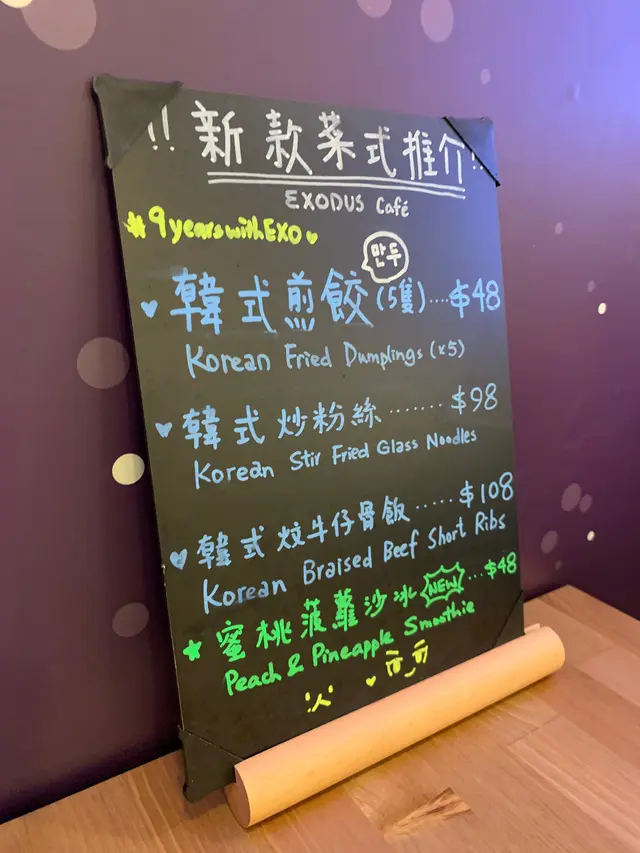 !! 新款菜式推介!!
EXODUS Café
#9yearswithEXO♥
만두
♥ 韓式煎餃(5隻)....$48
Korean Fried Dumplings (x5)
♥ 韓式炒粉絲........$98
Korean Stir Fried Glass Noodles
♥ 韓式炆牛仔骨飯.....$108
Korean Braised Beef Short Ribs
★ 蜜桃菠蘿沙冰 NEW ...$48
Peach & Pineapple Smoothie